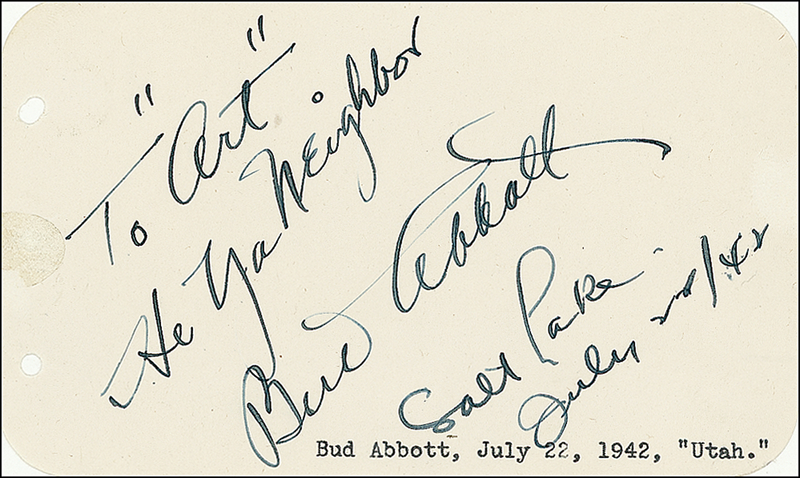 To "Art"
He Ya Neighbor
Bud Abbott
Salt Lake.
July 22/42
Bud Abbott, July 22, 1942, "Utah."